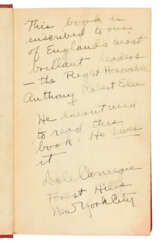 This book is
inscribed to one
of England's most
brilliant leaders
— the Right Honorable
Anthony Eden
He doesn't need
to read this
book: He lives
it
Dale Carnegie
Forest Hills
New York City